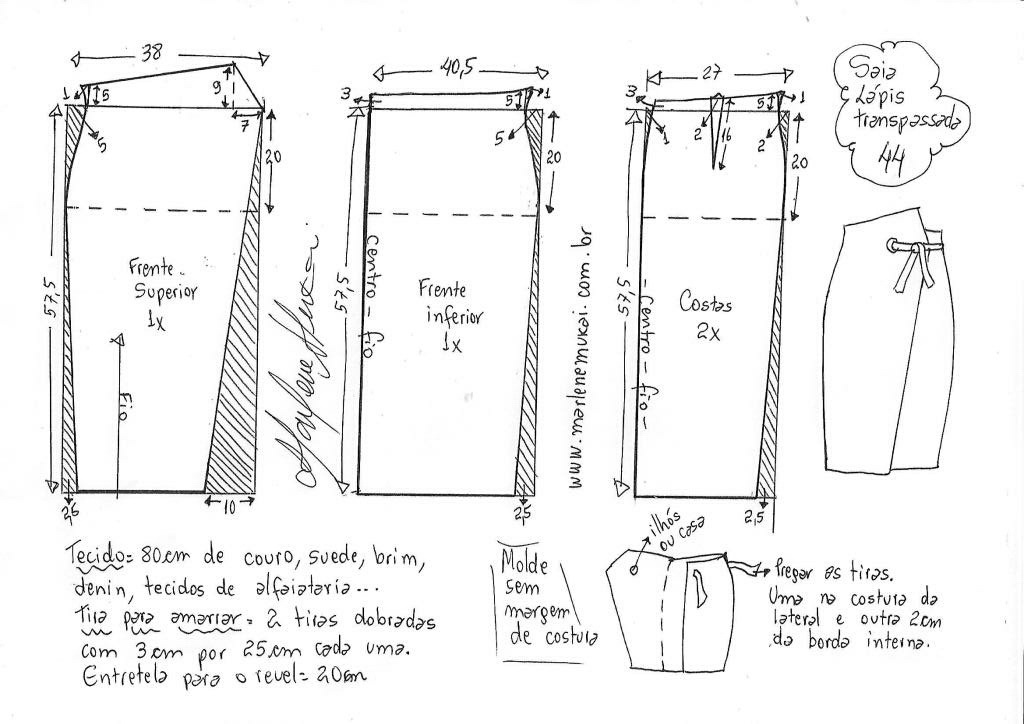 38
1
5
9
7
5
20
57,5
Frente
Superior
1x
Fio
2,5
10
Marlene Mukai
40,5
3
5
1
5
20
57,5
Centro - fio
Frente
inferior
1x
2,5
www.marlenemukai.com.br
27
3
5
1
1
2
16
2
20
57,5
- Centro - fio -
Costas
2x
2,5
Saia
Lápis
transpassada
44
Tecido= 80cm de couro, suede, brim,
denin, tecidos de alfaiataria...
Tira para amarrar= 2 tiras dobradas
com 3cm por 25cm cada uma.
Entretela para o revel= 20cm
Molde
sem
margem
de costura
ilhós
ou casa
Pregar as tiras.
Uma na costura da
lateral e outra 2cm
da borda interna.